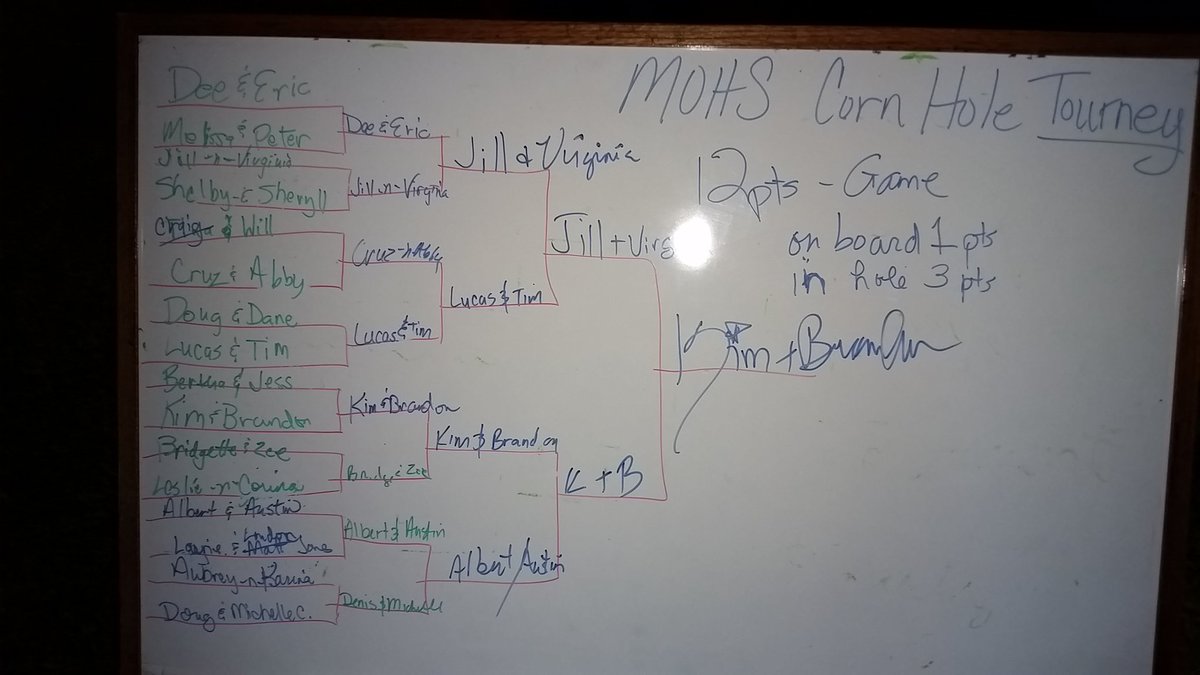 MOHS Corn Hole Tourney
12pts - Game
on board 1 pts
in hole 3 pts
Dee & Eric
Melissa & Peter
Jill -n- Virginia
Shelby & Sheryll
& Will
Cruz & Abby
Doug & Dane
Lucas & Tim
Bertha & Jess
Kim & Brandon
Bridgette & Zee
Leslie -n- Corina
Albert & Austin
& Jane
Aubrey -n- Karina
Doug & Michelle C.
Dee & Eric
Jill -n- Virginia
Cruz -n- Abby
Lucas & Tim
Kim & Brandon
Bridg. & Zee
Albert & Austin
Denis & Michelle
Jill & Virginia
Lucas & Tim
Kim & Brandon
Albert/Austin
Jill + Virg
K + B
Kim + Brandon